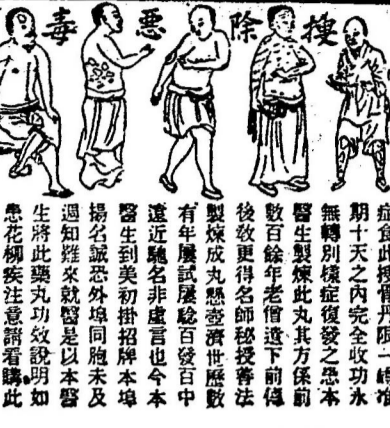 搜除惡毒
症食此搜丹限一准
期十天之內完全收功永
無轉別樣症復發之恐本
醫生製煉此丸其方係前
數百餘年老僧遺下前傳
後敎更得名師秘授善法
製煉成丸懸壺濟世歷數
有年屢試屢騐百發百中
遠近馳名非虛言也今本
醫生到美初掛招牌本埠
揚名誠恐外埠同胞未及
週知難來就醫是以本醫
生將此藥丸功效說明如
患花柳疾注意請看購此